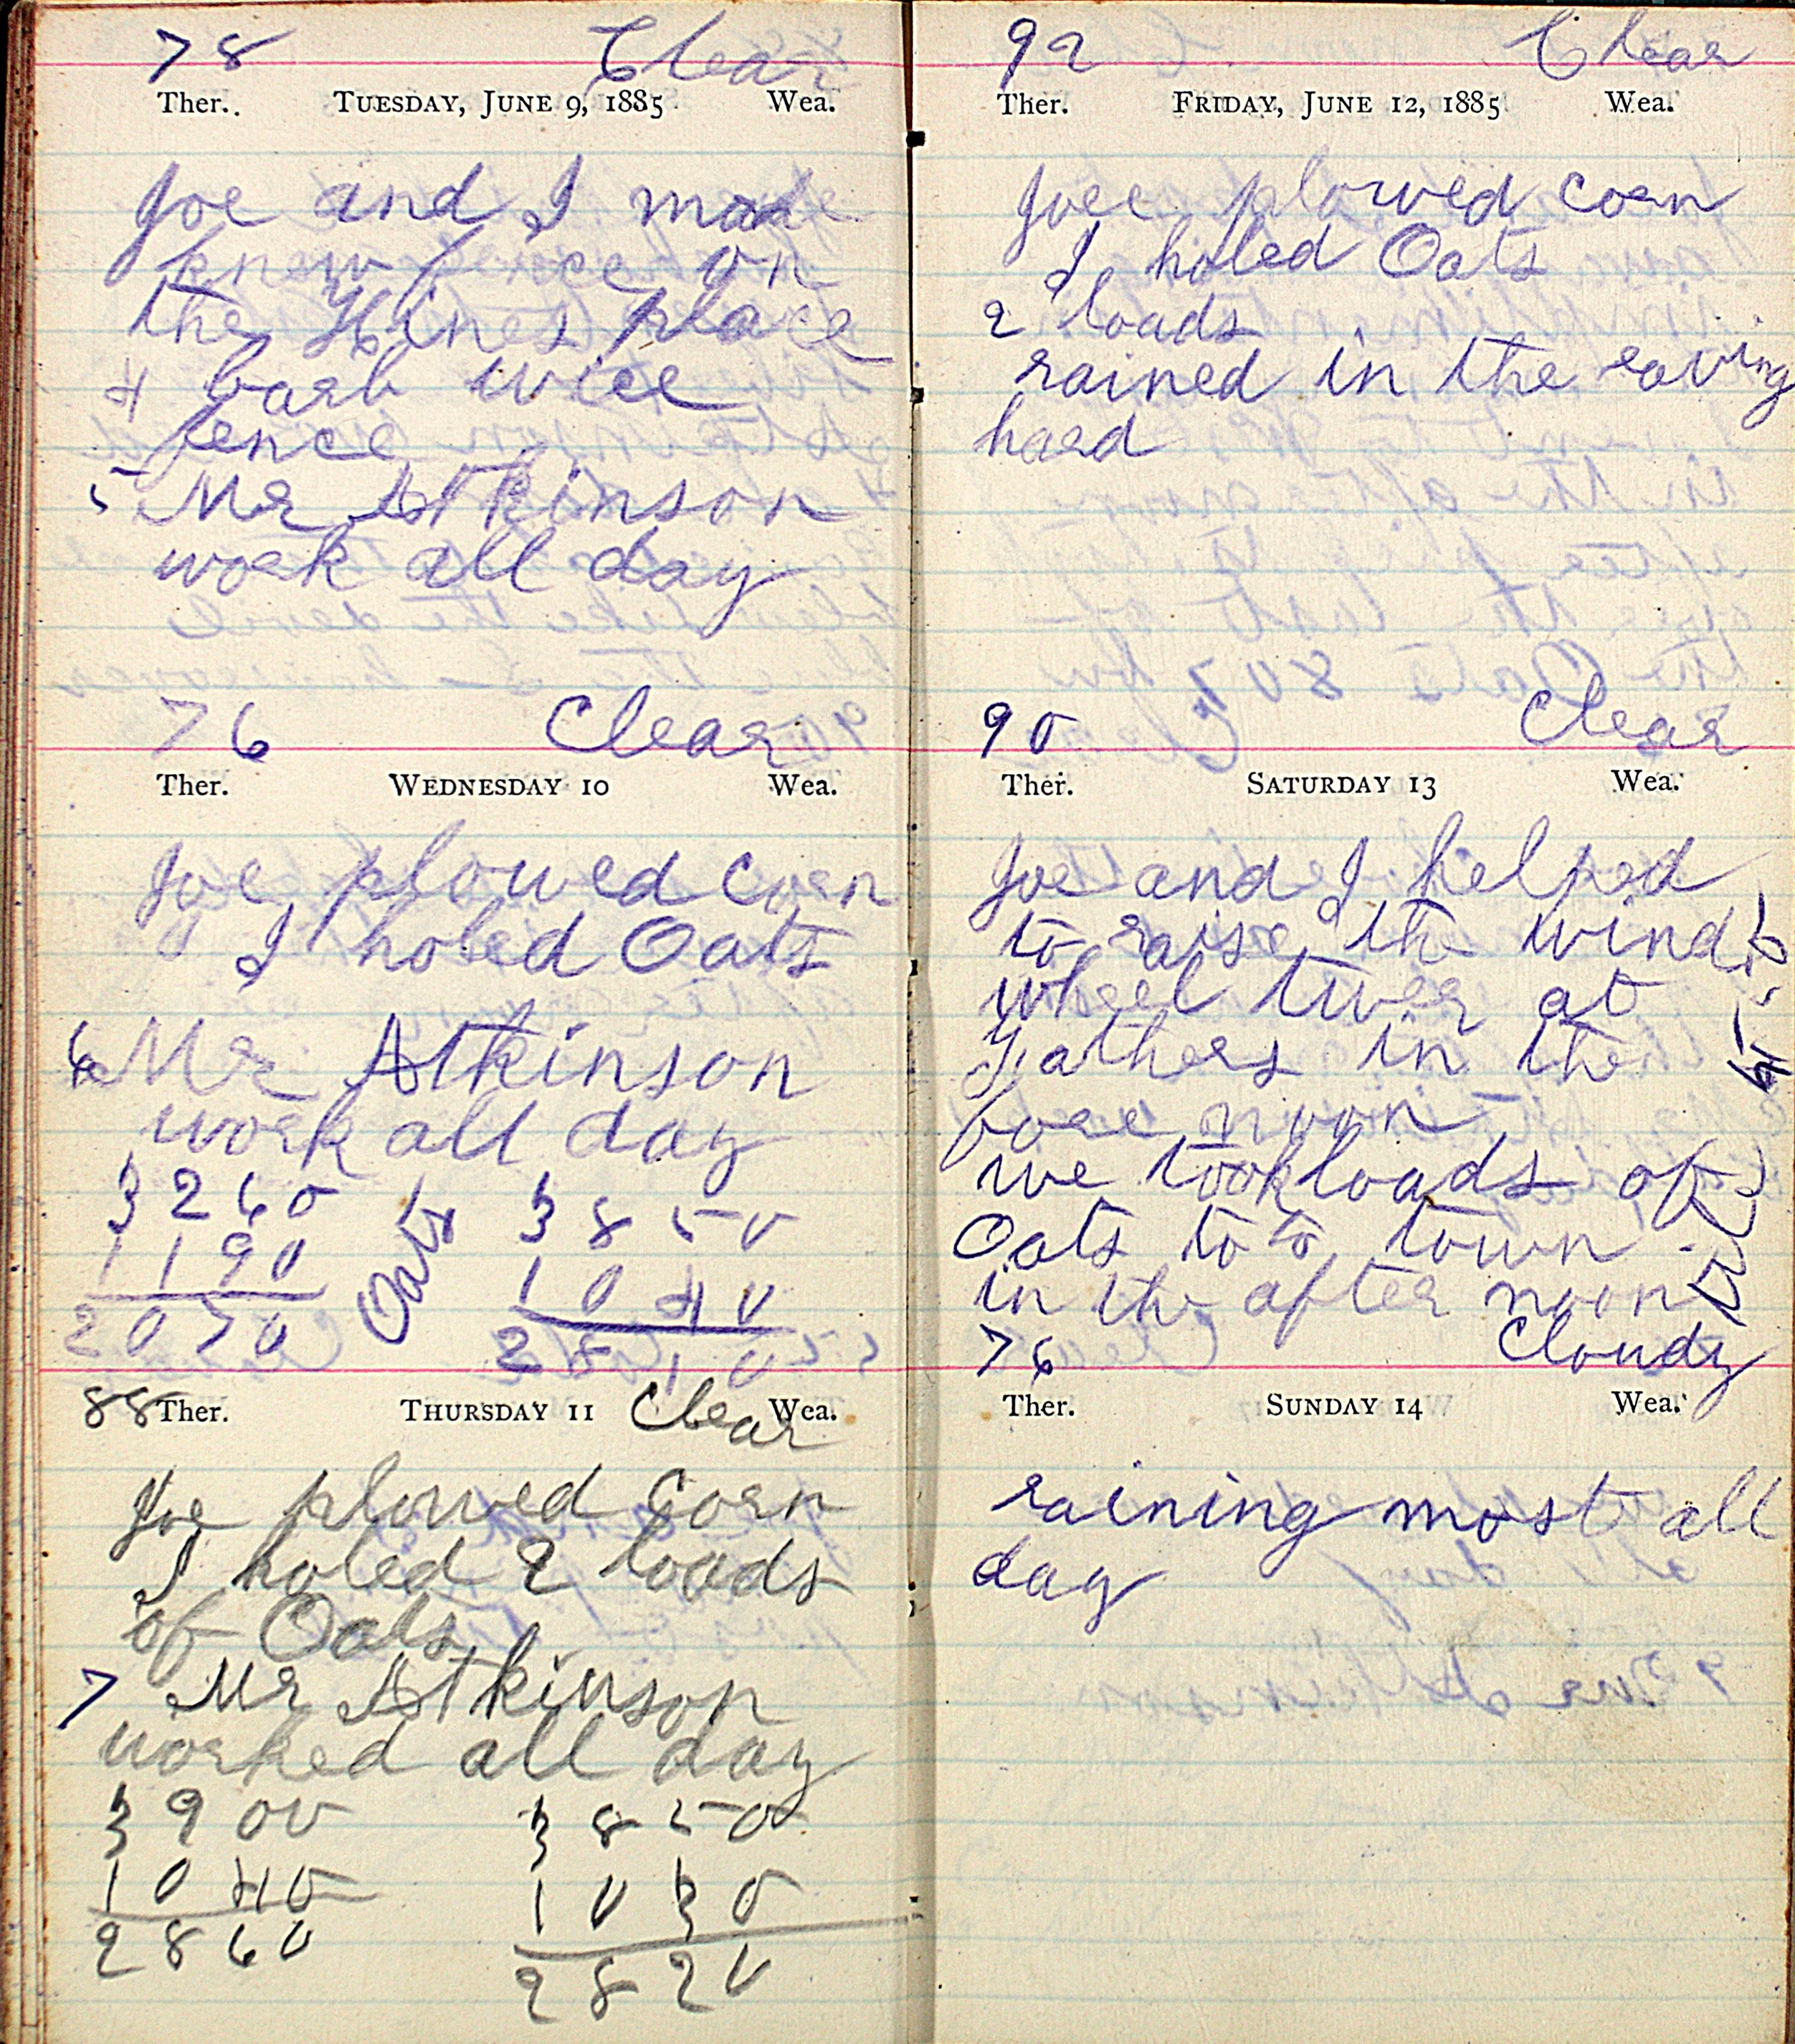 78 Clear
Ther. TUESDAY, JUNE 9, 1885 Wea.
Joe and I made
knew fence on
the Hines place
4 barb wire
fence
5 Mr Atkinson
work all day
76 Clear
Ther. WEDNESDAY 10 Wea.
Joe plowed Corn
I holed Oats
6 Mr Atkinson
work all day
3260 Oats 3850
1190 1040
2070 2810
88 Ther. THURSDAY 11 Clear Wea.
Joe plowed Corn
I holed 2 loads
of Oats
7 Mr Atkinson
worked all day
3900 3850
1040 1030
2860 2820
92 Clear
Ther. FRIDAY, JUNE 12, 1885 Wea.
Joee plowed corn
I holed Oats
2 loads
rained in the
hard
90 Clear
Ther. SATURDAY 13 Wea.
Joe and I helped
to raise the wind
wheel tweer at
Fathers in the
fore noon
we took loads of
Oats to to town
in the after noon
76 Cloudy
Ther. SUNDAY 14 Wea.
raining most all
day